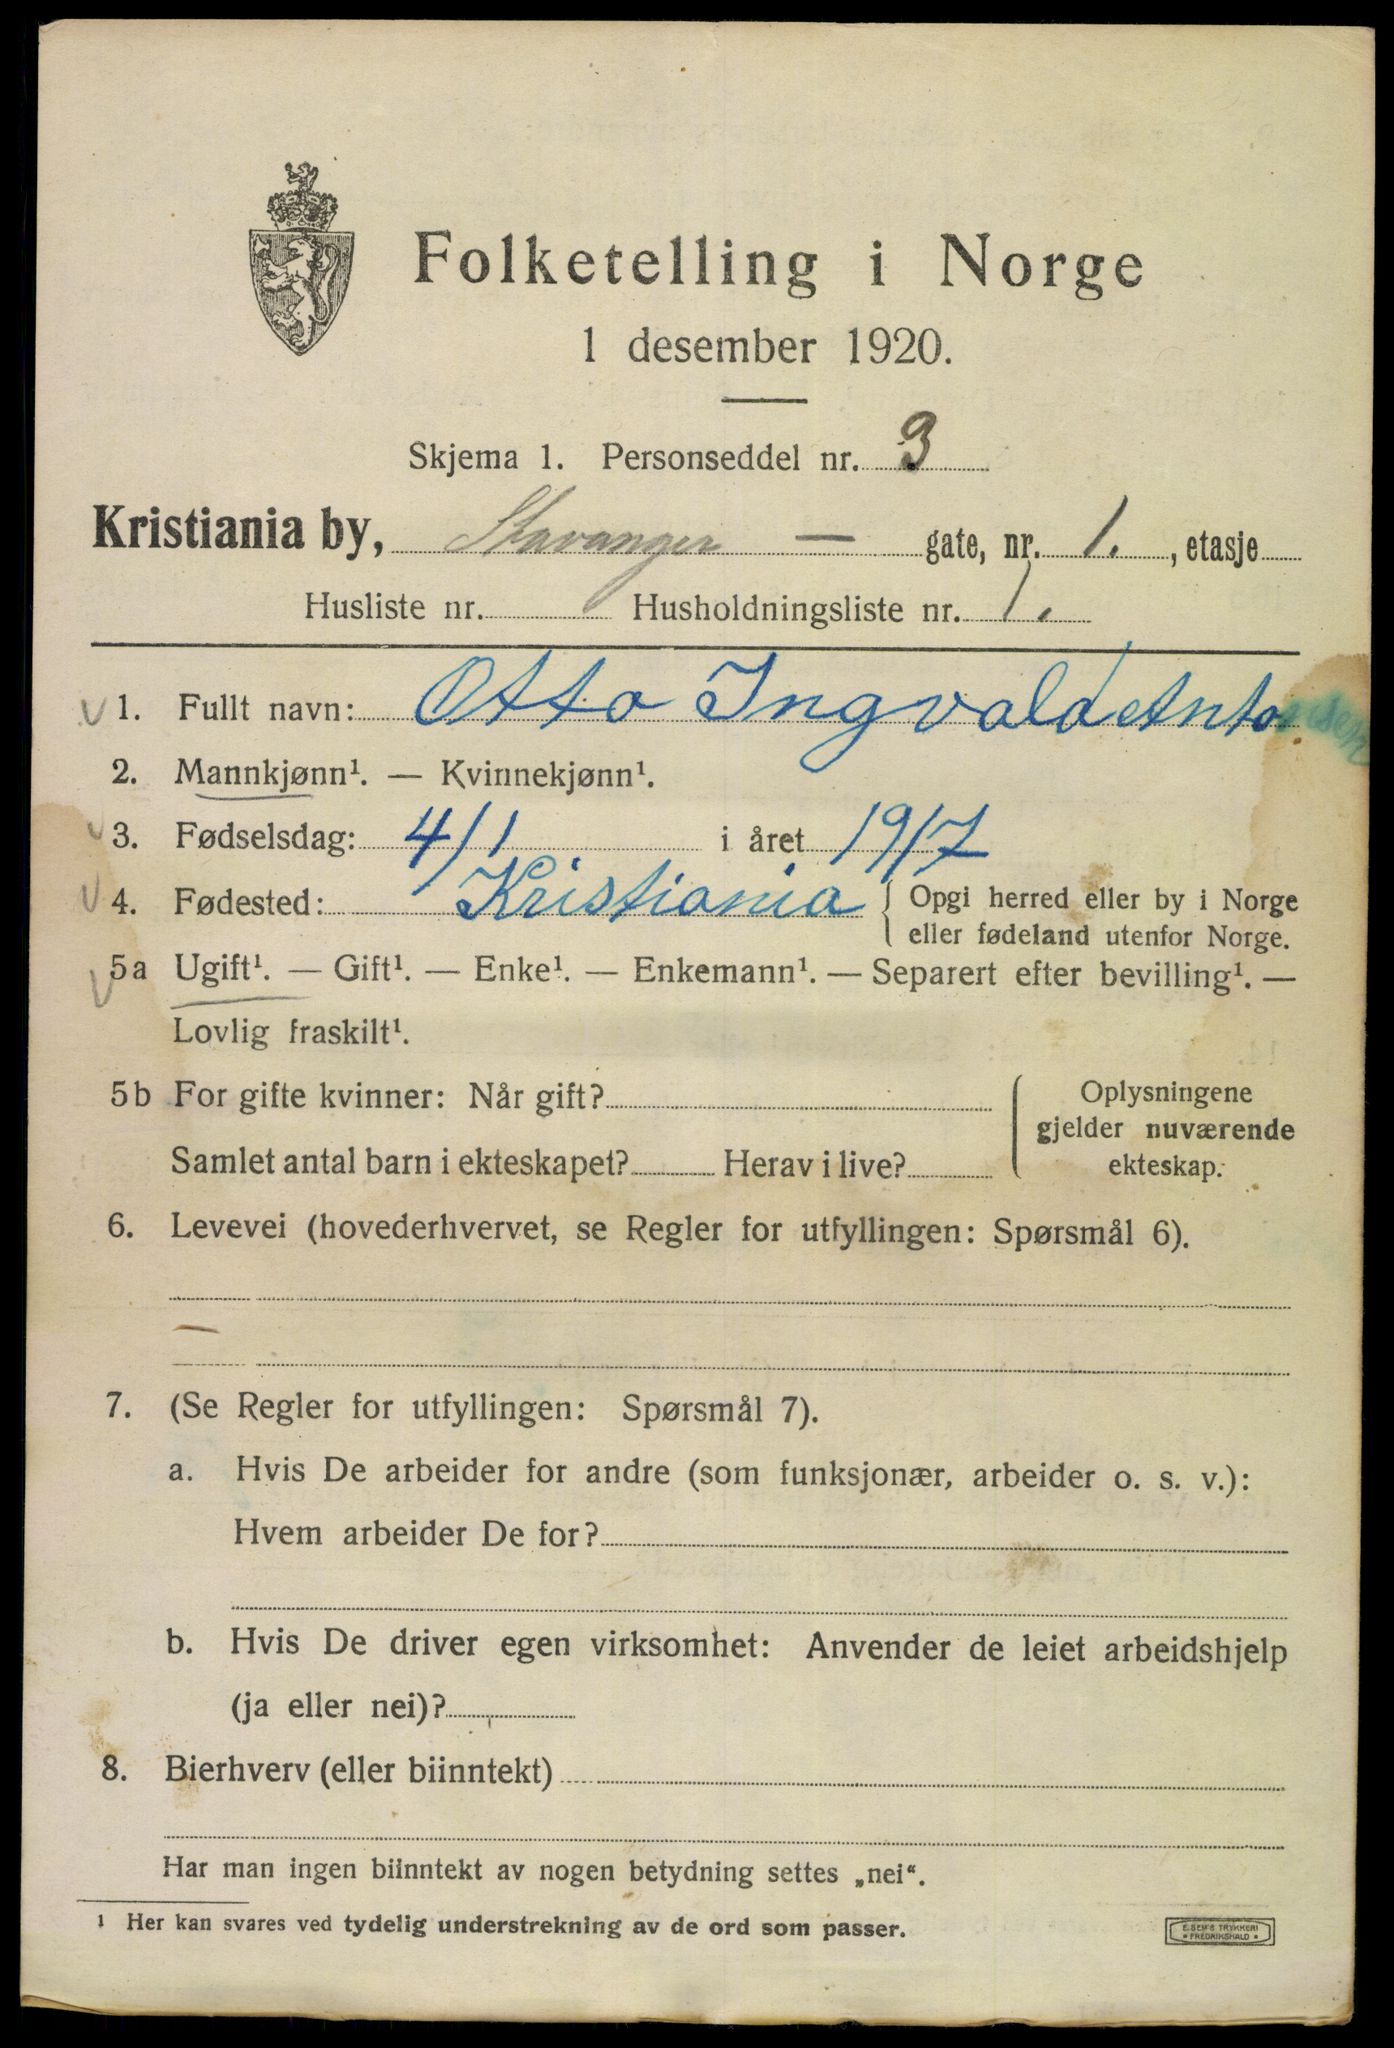 Folketelling i Norge
1 desember 1920.
Skjema 1. Personseddel nr. 3
Kristiania by, Stavanger — gate, nr. 1. , etasje
Husliste nr. Husholdningsliste nr. 1.
1. Fullt navn: Otto Ingvald Antonsen
2. Mannkjønn¹. — Kvinnekjønn¹.
3. Fødselsdag: 4/1 i året 1917
4. Fødested: Kristiania { Opgi herred eller by i Norge
eller fødeland utenfor Norge.
5a Ugift¹. — Gift¹. — Enke¹. — Enkemann¹. — Separert efter bevilling¹. —
Lovlig fraskilt¹.
5b For gifte kvinner: Når gift? { Oplysningene
gjelder nuværende
Samlet antal barn i ekteskapet? Herav i live? ekteskap.
6. Levevei (hovederhvervet, se Regler for utfyllingen: Spørsmål 6).
—
7. (Se Regler for utfyllingen: Spørsmål 7).
a. Hvis De arbeider for andre (som funksjonær, arbeider o. s. v.):
Hvem arbeider De for?
b. Hvis De driver egen virksomhet: Anvender de leiet arbeidshjelp
(ja eller nei)?
8. Bierhverv (eller biinntekt)
Har man ingen biinntekt av nogen betydning settes „nei“.
¹ Her kan svares ved tydelig understrekning av de ord som passer.
E. SEM'S TRYKKERI
* FREDRIKSHALD *